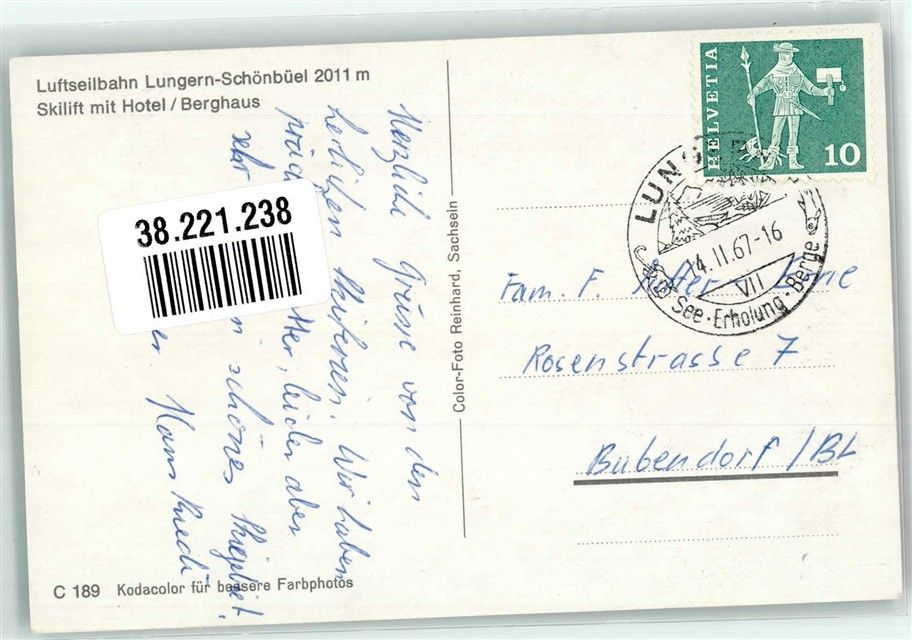 Luftseilbahn Lungern-Schönbüel 2011 m
Skilift mit Hotel / Berghaus
HELVETIA
10
LUNGERN
14.II.67-16
VII
See-Erholung-Berge
38.221.238
Herzliche Grüsse von den
herrlichen Skiferien. Wir haben
präch tter, leider aber
sehr in schönes Skigebiet.
er Hansruedi
Color-Foto Reinhard, Sachseln
Fam. F.
Rosenstrasse 7
Bubendorf /BL
C 189 Kodacolor für bessere Farbphotos